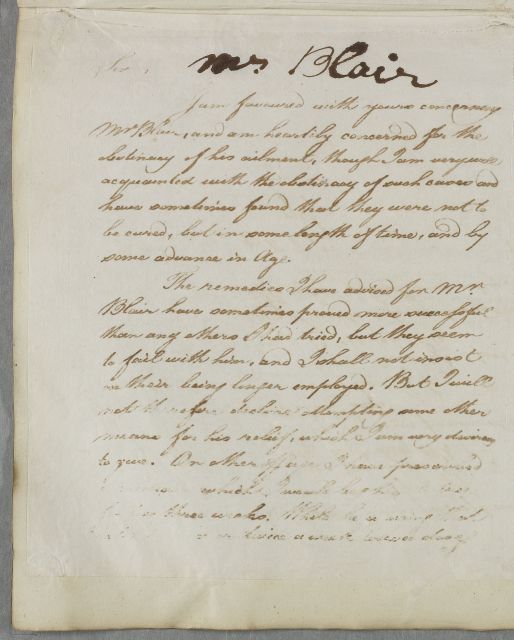 Sir,
Mr Blair
I am favoured with yours concerning
Mr Blair, and am heartily concerned for the
obstinacy of his ailment, though I am very well
acquainted with the obstinacy of such cases and
have sometimes found that they were not to
be cured, but in some length of time, and by
some advance in Age.
The remedies I have advised for Mr
Blair have sometimes proved more successful
than any others I had tried, but they seem
to fail with him, and I shall not insist
on their being longer employed. But I will
not therefore decline attempting some other
means for his relief, which I am very desirous
to give. On other I have prescribed
which I would have
three weeks. While he is using that
twice a week